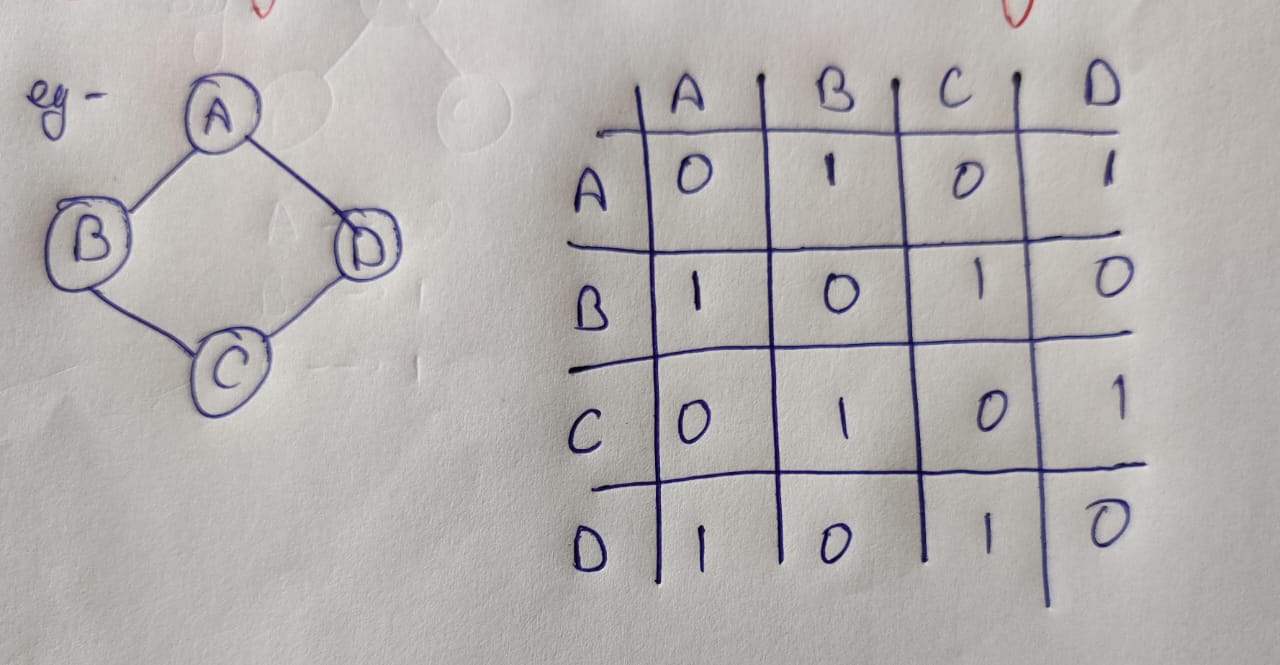 eg -
A
B
D
C
A B C D
A 0 1 0 1
B 1 0 1 0
C 0 1 0 1
D 1 0 1 0